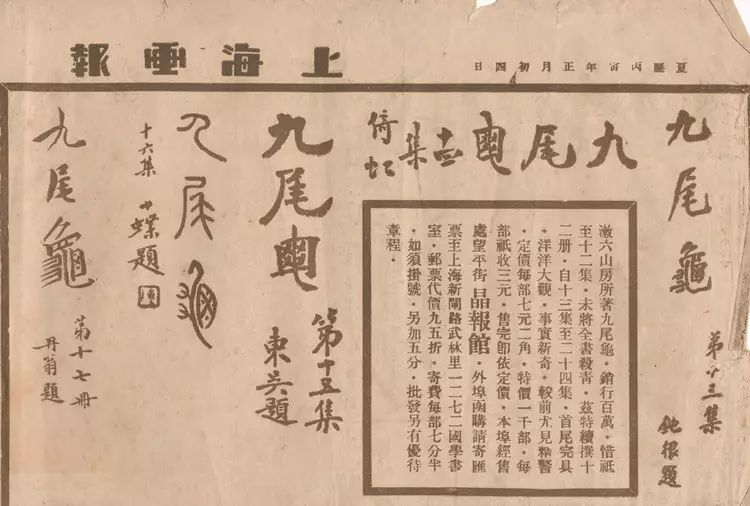 上海畫報
夏曆丙寅年正月初四日
九尾龜
第十三集
鈍根題
九尾龜十四集
倚虹
漱六山房所著九尾龜．銷行百萬．惜祇
至十二集．未將全書殺青．茲特續撰十
二册．自十三集至二十四集．首尾完具
．洋洋大觀．事實新奇．較前尤見精警
．定價每部七元二角．特價一千部．每
部祇收三元．售完卽依定價．本埠經售
處望平街晶報館．外埠函購請寄匯
票至上海新閘路武林里一二七二國學書
室．郵票代價九五折．寄費每部七分半
．如須掛號．另加五分．批發另有優待
章程．
九尾龜
第十五集
東吳題
九尾龜
十六集 小蝶題
九尾龜
第十七册
丹翁題